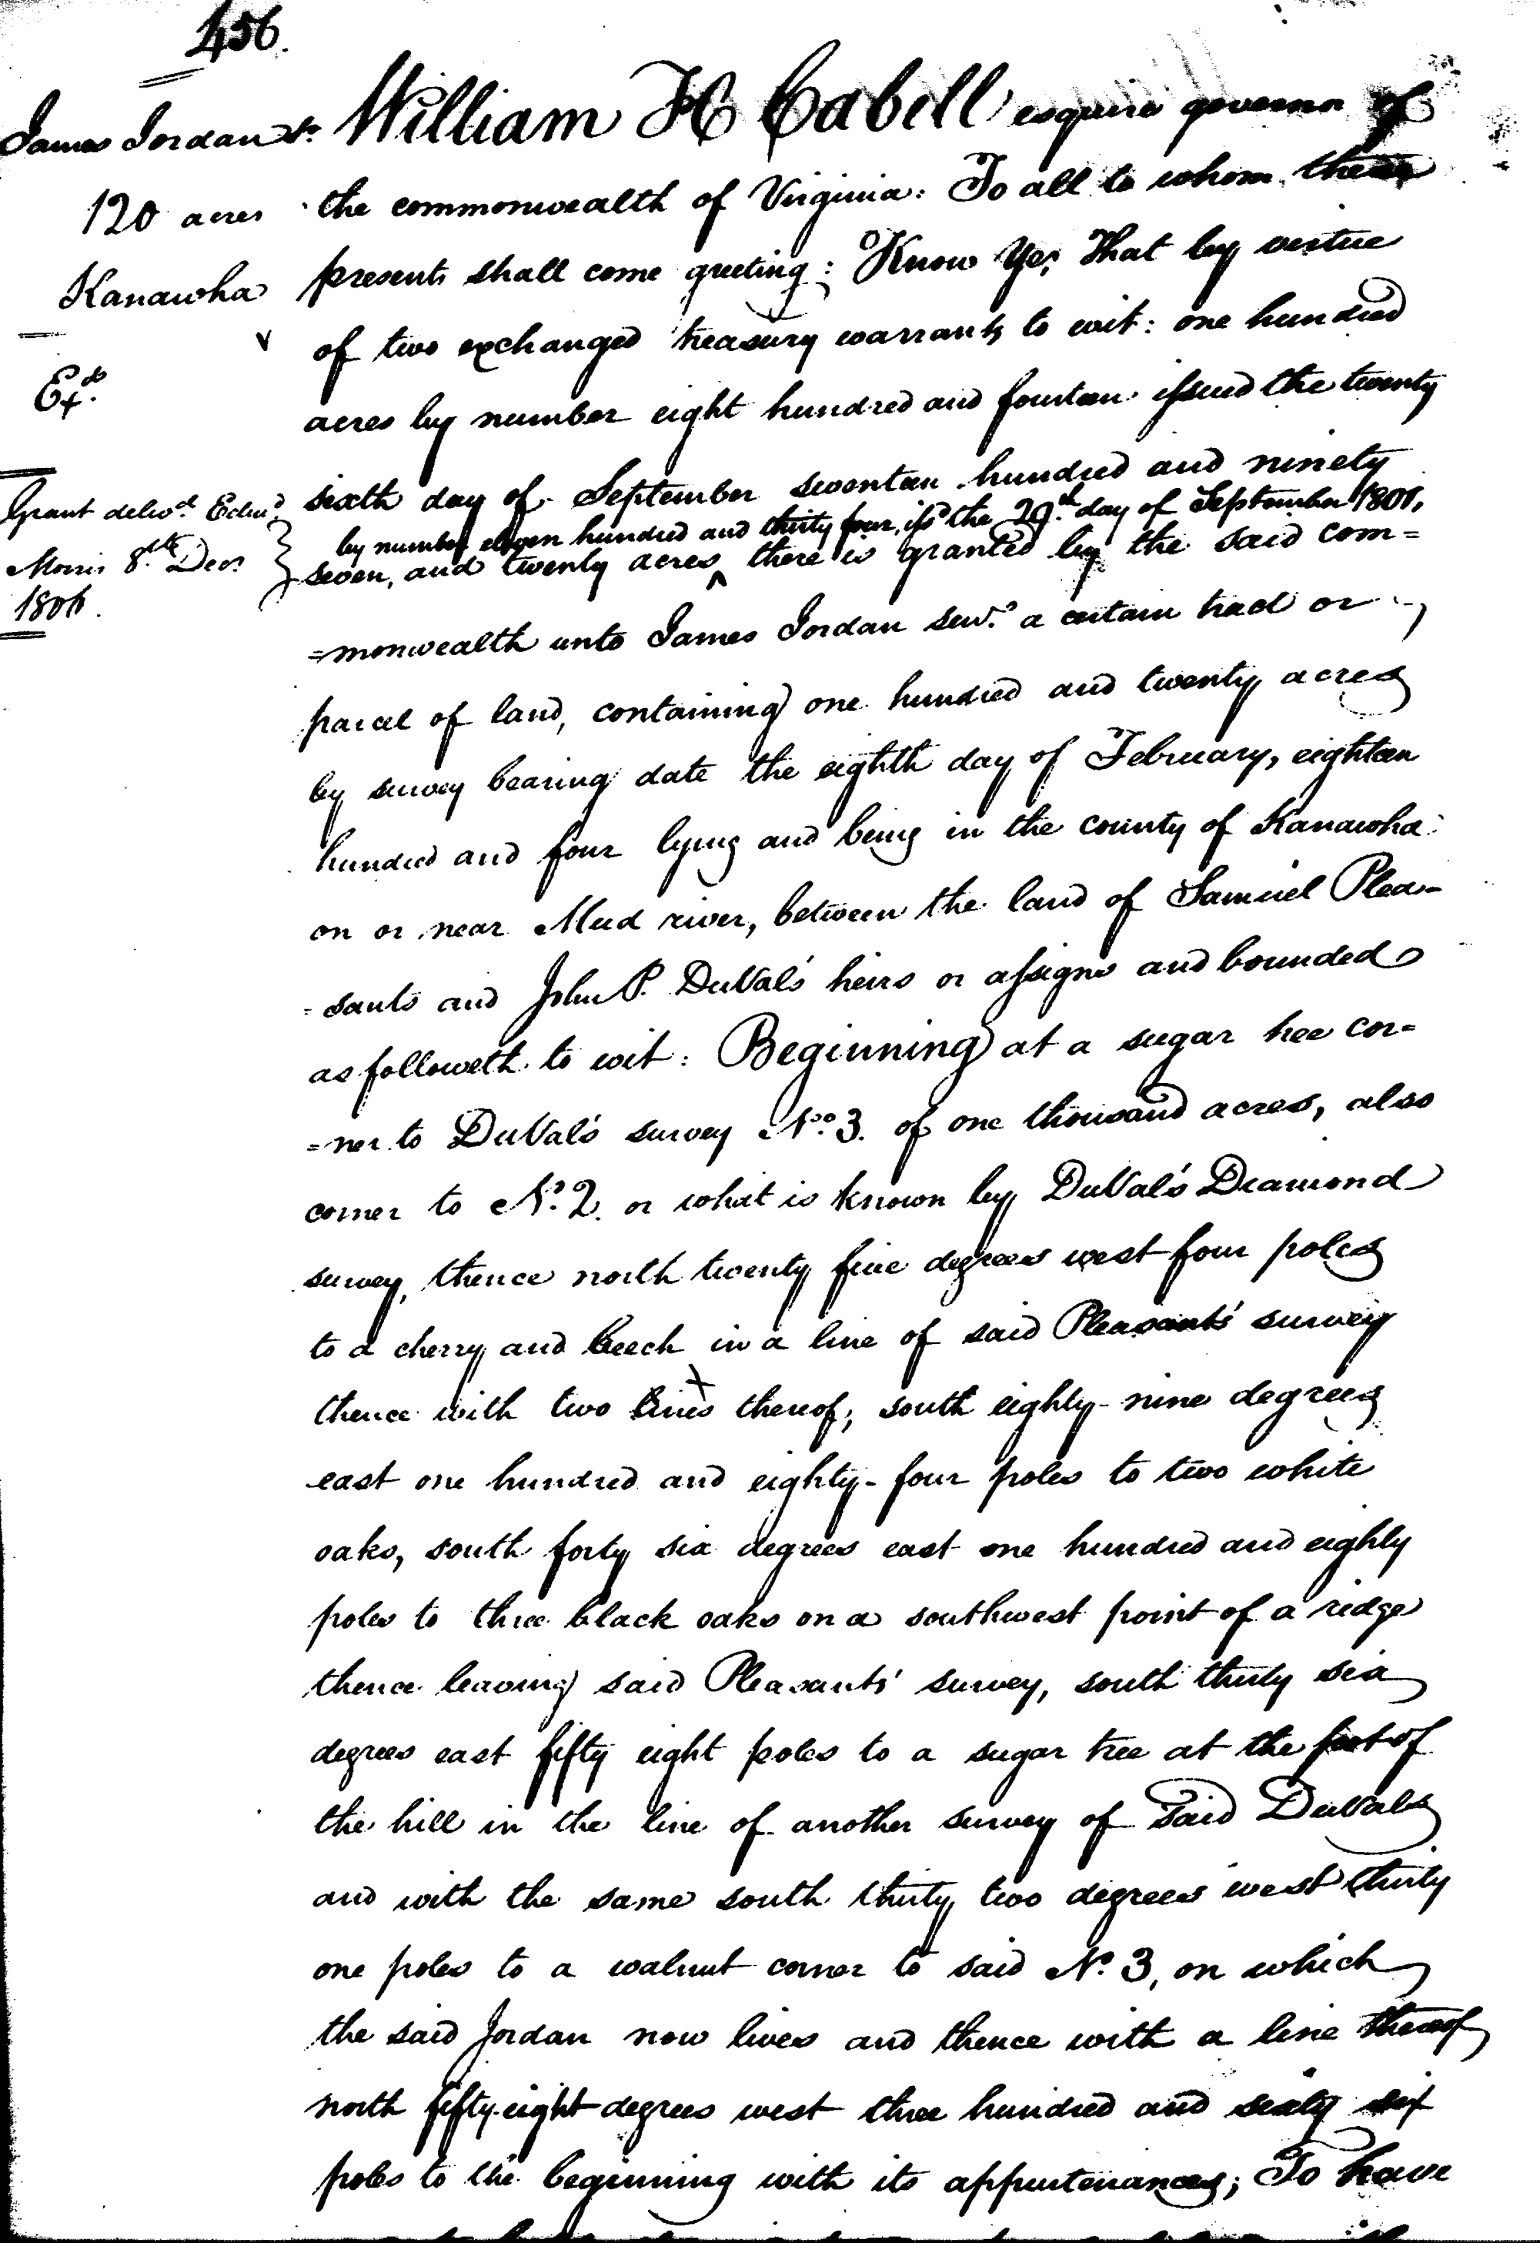 456.
James Jordan Sr.
120 acres
Kanawha
Exd.
Grant delivd. Edmd.
Morris 8th Decr.
1806.
William H Cabell esquire governor of
the commonwealth of Virginia: To all to whom these
presents shall come greeting: Know Ye, That by virtue
of two exchanged treasury warrants to wit: one hundred
acres by number eight hundred and fourteen issued the twenty
sixth day of September seventeen hundred and ninety
by number eleven hundred and thirty four, issd the 29th day of September 1801,
seven, and twenty acres ^ there is granted by the said com=
=monwealth unto James Jordan senr. a certain tract or
parcel of land, containing one hundred and twenty acres
by survey bearing date the eighth day of February, eighteen
hundred and four lying and being in the county of Kanawha
on or near Mud river, between the land of Samuel Plea=
=sants and John P. DuVal's heirs or assigns and bounded
as followeth to wit: Beginning at a sugar tree cor=
=ner to DuVal's survey No. 3. of one thousand acres, also
corner to No. 2. or what is known by DuVal's Diamond
survey, thence north twenty five degrees west four poles
to a cherry and beech in a line of said Pleasants' survey
thence with two lines thereof; south eighty-nine degrees
east one hundred and eighty-four poles to two white
oaks, south forty six degrees east one hundred and eighty
poles to three black oaks on a southwest point of a ridge
thence leaving said Pleasants' survey, south thirty six
degrees east fifty eight poles to a sugar tree at the foot of
the hill in the line of another survey of said DuVals
and with the same south thirty two degrees west thirty
one poles to a walnut corner to said No. 3, on which
the said Jordan now lives and thence with a line thereof
north fifty-eight degrees west three hundred and sixty six
poles to the beginning with its appurtenances; To have